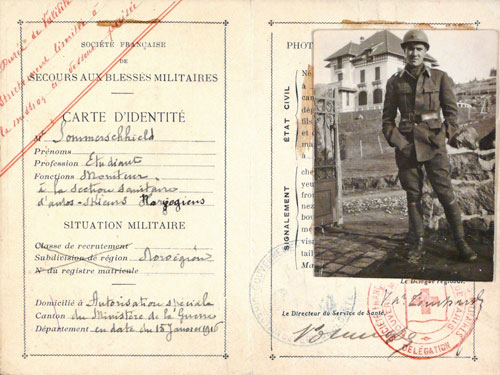 Durée de validité
strictement limitée à
la mission ci-dessous précisée
SOCIÉTÉ FRANÇAISE
DE
SECOURS AUX BLESSÉS MILITAIRES
CARTE D'IDENTITÉ
M Sommerschield
Prénoms
Profession Etudiant
Fonctions Moniteur
à la section sanitaire
d'autos-skieurs Norvégiens
SITUATION MILITAIRE
Classe de recrutement
Subdivision de région Norvégien
No du registre matricule
Domicilié à Autorisation spéciale
Canton du Ministère de la Guerre
Département en date du 15 Janvier 1916
PHOT
SIGNALEMENT
ÉTAT CIVIL
Le Délégué régional,
Le Directeur du Service de Santé,
DÉLÉGATION